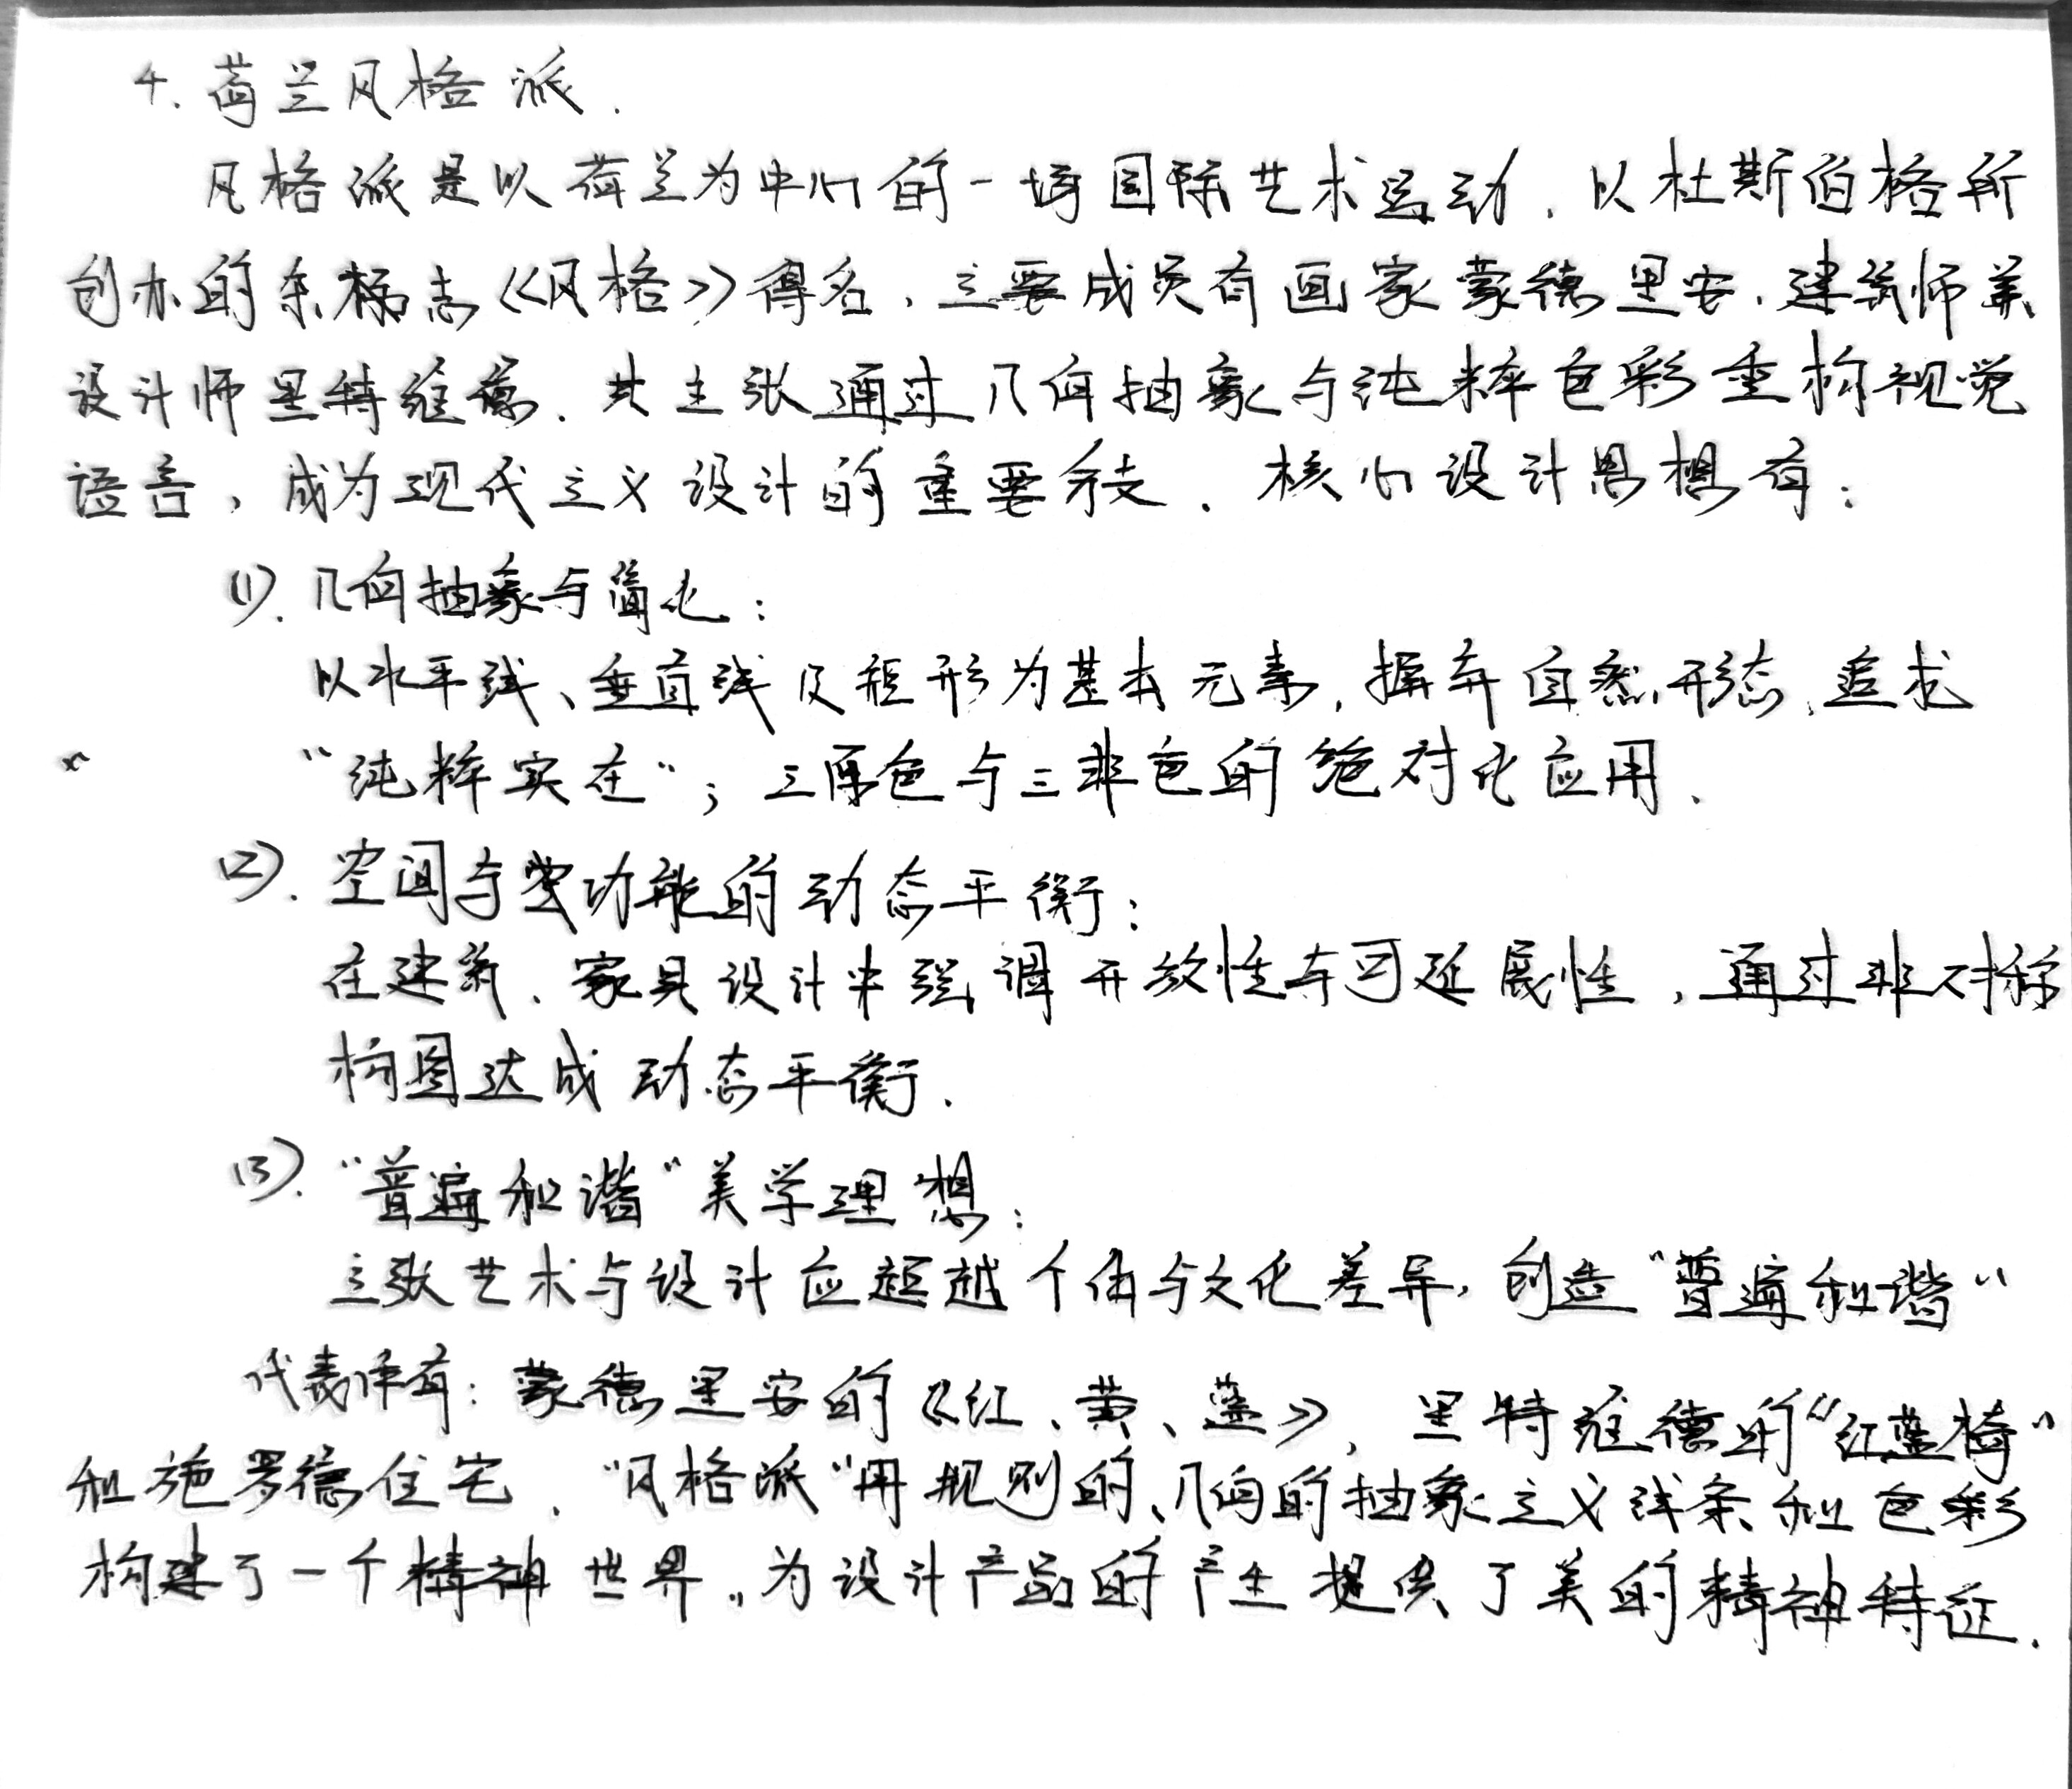 4. 荷兰风格派.
风格派是以荷兰为中心的一场国际艺术运动. 以杜斯伯格所
创办的杂志《风格》得名, 主要成员有画家蒙德里安. 建筑师兼
设计师里特维德. 其主张通过几何抽象与纯粹色彩重构视觉
语言, 成为现代主义设计的重要分支. 核心设计思想有:
(1). 几何抽象与简化:
以水平线、垂直线及矩形为基本元素, 摒弃自然形态, 追求
"纯粹实在"; 三原色与三非色的绝对化应用.
(2). 空间与功能的动态平衡:
在建筑、家具设计中强调开放性与可延展性, 通过非对称
构图达成动态平衡.
(3). "普遍和谐"美学理想:
主张艺术与设计应超越个体与文化差异, 创造"普遍和谐"
代表作有: 蒙德里安的《红、黄、蓝》, 里特维德的"红蓝椅"
和施罗德住宅. "风格派"用规则的、几何的抽象主义线条和色彩
构建了一个精神世界, 为设计产品的产生提供了美的精神特征.